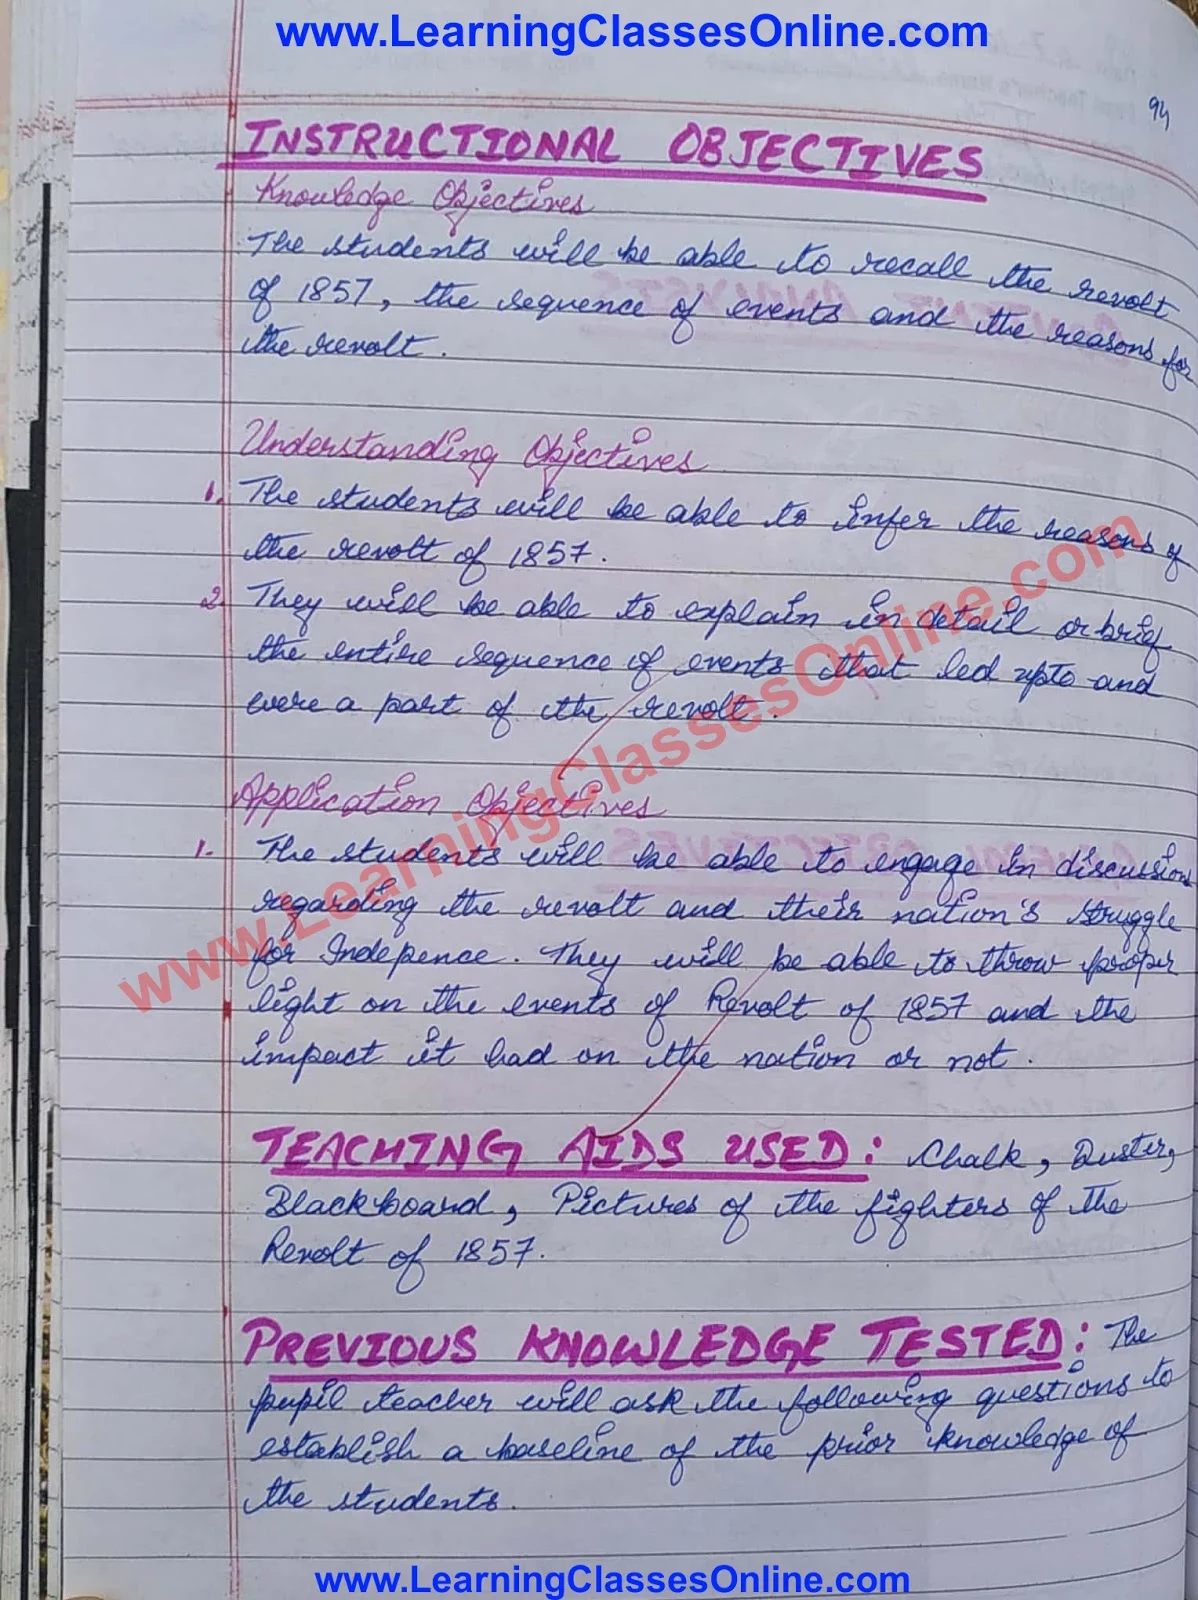 www.LearningClassesOnline.com
94
INSTRUCTIONAL OBJECTIVES
Knowledge Objectives
The students will be able to recall the revolt
of 1857, the sequence of events and the reasons for
the revolt.
Understanding Objectives
1. The students will be able to infer the reasons of
the revolt of 1857.
2. They will be able to explain in detail or brief
the entire sequence of events that led upto and
were a part of the revolt.
www.LearningClassesOnline.com
Application Objectives
1. The students will be able to engage in discussion
regarding the revolt and their nation's struggle
for Indepence. They will be able to throw proper
light on the events of Revolt of 1857 and the
impact it had on the nation or not.
TEACHING AIDS USED: Chalk, Duster,
Blackboard, Pictures of the fighters of the
Revolt of 1857.
PREVIOUS KNOWLEDGE TESTED: The
pupil teacher will ask the following questions to
establish a baseline of the prior knowledge of
the students.
www.LearningClassesOnline.com